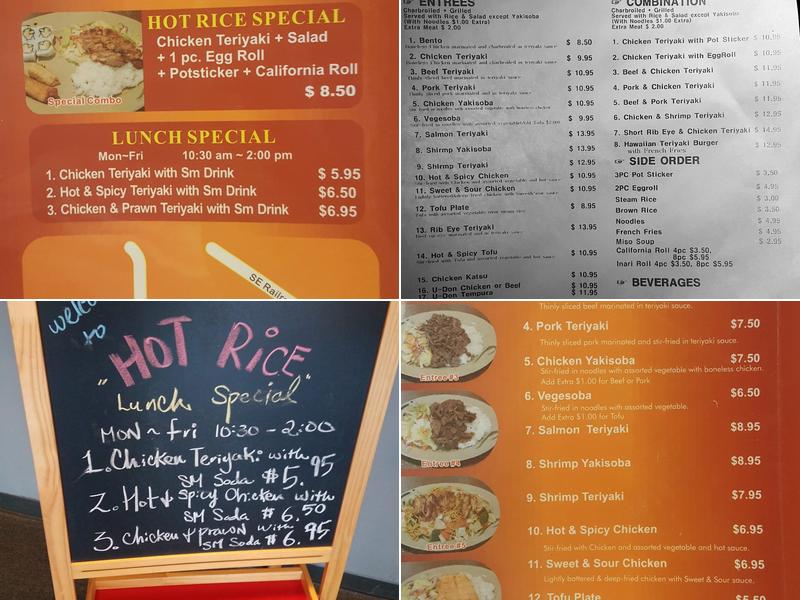 HOT RICE SPECIAL
Chicken Teriyaki + Salad
+ 1 pc. Egg Roll
+ Potsticker + California Roll
$ 8.50
Special Combo
LUNCH SPECIAL
Mon~Fri 10:30 am ~ 2:00 pm
1. Chicken Teriyaki with Sm Drink $ 5.95
2. Hot & Spicy Chicken with Sm Drink $6.50
3. Chicken & Prawn Teriyaki with Sm Drink $6.95
SE Railro
☞ ENTREES
Charbroiled • Grilled
Served with Rice & Salad except Yakisoba
(With Noodles $1.00 Extra)
Extra Meat $ 2.00
1. Bento $ 8.50
Boneless Chicken marinated and charbroiled in teriyaki sauce
2. Chicken Teriyaki $ 9.95
Boneless Chicken marinated and charbroiled in teriyaki sauce
3. Beef Teriyaki $ 10.95
Thinly sliced beef marinated in teriyaki sauce
4. Pork Teriyaki $ 10.95
Thinly sliced pork marinated and in teriyaki sauce
5. Chicken Yakisoba $ 10.95
Stir-fried in noodles with assorted vegetable with boneless chicken
6. Vegesoba $ 9.95
Stir-fried in noodles with assorted vegetable
7. Salmon Teriyaki $ 13.95
8. Shirmp Yakisoba $ 13.95
9. Shirmp Teriyaki $ 12.95
10. Hot & Spicy Chicken $ 10.95
Stir-fried with Chicken and assorted vegetable and hot sauce
11. Sweet & Sour Chicken $ 10.95
12. Tofu Plate $ 8.95
Tofu with assorted vegetable
13. Rib Eye Teriyaki $ 13.95
14. Hot & Spicy Tofu $ 10.95
Stir-fried with Tofu and assorted vegetable and hot sauce
15. Chicken Katsu $ 10.95
16. U-Don Chicken or Beef $ 10.95
17. U-Don Tempura $ 11.95
☞ COMBINATION
Charbroiled • Grilled
Served with Rice & Salad except Yakisoba
(With Noodles $1.00 Extra)
Extra Meat $ 2.00
1. Chicken Teriyaki with Pot Sticker $ 10.95
2. Chicken Teriyaki with EggRoll $ 10.95
3. Beef & Chicken Teriyaki $ 11.95
4. Pork & Chicken Teriyaki $ 11.95
5. Beef & Pork Teriyaki $ 11.95
6. Chicken & Shrimp Teriyaki $ 12.95
7. Short Rib Eye & Chicken Teriyaki $ 14.95
8. Hawaiian Teriyaki Burger $ 12.95
with French Fries
☞ SIDE ORDER
3PC Pot Sticker $ 3.50
2PC Eggroll $ 4.95
Steam Rice $ 3.00
Brown Rice $ 3.50
Noodles $ 4.95
French Fries $ 4.95
Miso Soup $ 2.95
California Roll 4pc $3.50,
8pc $5.95
Inari Roll 4pc $3.50, 8pc $5.95
☞ BEVERAGES
welcome
to
HOT RICE
"Lunch Special"
MON ~ Fri 10:30 - 2:00
1. Chicken Teriyaki with
SM Soda $5.95
2. Hot & Spicy Chicken with
SM Soda $6.50
3. Chicken & prawn with
SM Soda $6.95
Thinly sliced beef marinated in teriyaki sauce.
4. Pork Teriyaki $7.50
Thinly sliced pork marinated and stir-fried in teriyaki sauce.
5. Chicken Yakisoba $7.50
Stir-fried in noodles with assorted vegetable with boneless chicken.
Add Extra $1.00 for Beef or Pork
6. Vegesoba $6.50
Stir-fried in noodles with assorted vegetable.
Add Extra $1.00 for Tofu
7. Salmon Teriyaki $8.95
8. Shrimp Yakisoba $8.95
9. Shrimp Teriyaki $7.95
10. Hot & Spicy Chicken $6.95
Stir-fried with Chicken and assorted vegetable and hot sauce.
11. Sweet & Sour Chicken $6.95
Lightly battered & deep-fried chicken with Sweet & Sour sauce.
12. Tofu Plate $5.50
Entree #3
Entree #4
Entree #5